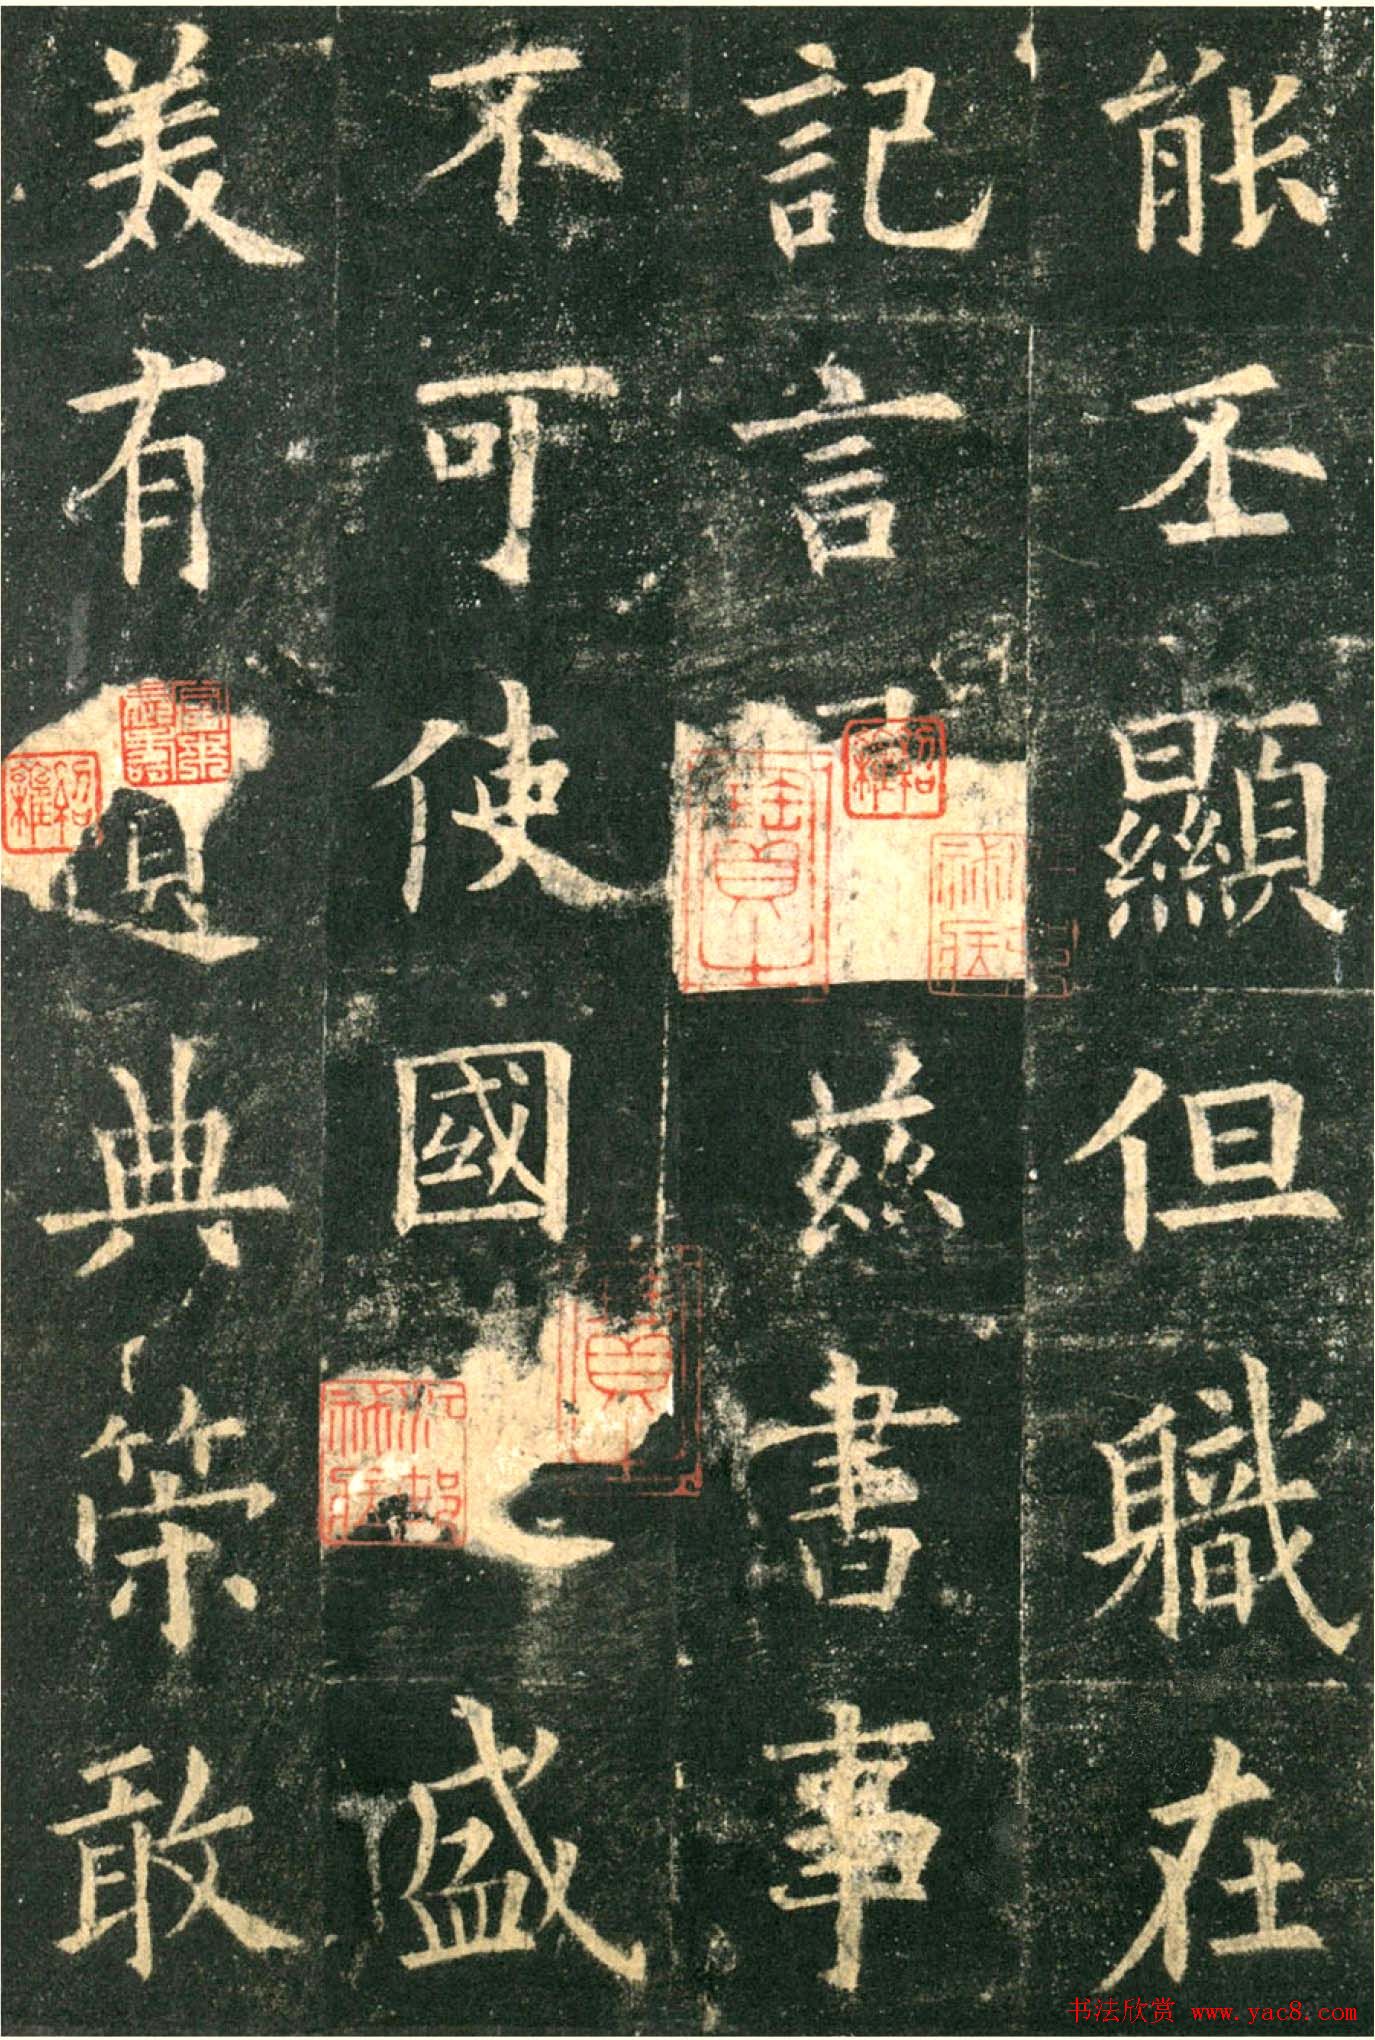 能丕顯但職在
記言慈書事
不可使國之盛
美有遺典策敢
书法欣赏 www.yac8.com